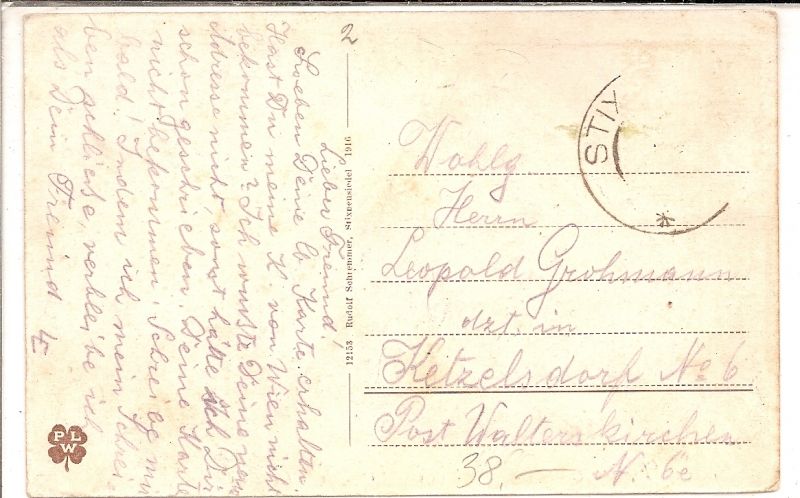 2
Lieber Freund!
Soeben Deine lb. Karte erhalten.
Hast Du meine K. von Wien nicht
bekommen? Ich wusste Deine
Adresse nicht, sonst hätte ich Dir
schon geschrieben. Deine Karte
nicht bekommen. Schreibe mir
bald! Indem ich mein Schrei-
ben schließe, verbleibe ich
als Dein Freund
12153 Rudolf Schremmer, Stixneusiedel 1916
STIX
*
Wohlg.
Herrn
Leopold Grohmann
dzt. in
Ketzelsdorf No 6
Post Walterskirchen
38.— N. Öe
PLW